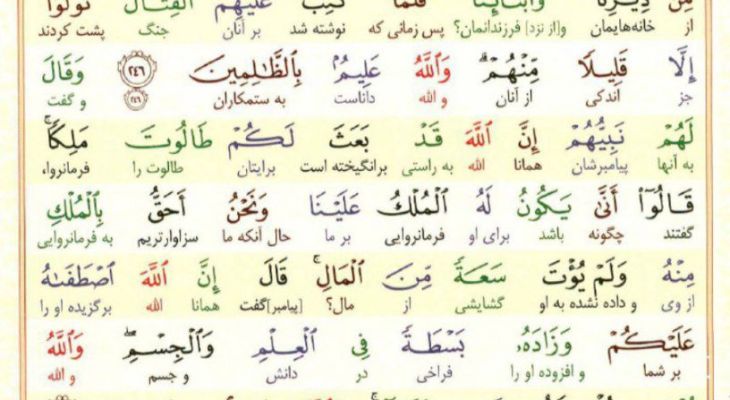 مِن دِيَـٰرِنَا وَأَبْنَآئِنَا فَلَمَّا كُتِبَ عَلَيْهِمُ ٱلْقِتَالُ تَوَلَّوْا۟
از خانه‌هایمان و[از نزد] فرزندانمان؟ پس زمانی که نوشته شد بر آنان جنگ پشت کردند
إِلَّا قَلِيلًا مِّنْهُمْ وَٱللَّهُ عَلِيمٌۢ بِٱلظَّـٰلِمِينَ ﴿٢٤٦﴾ وَقَالَ
جز اندکی از آنان و الله داناست به ستمکاران ﴿٢٤٦﴾ و گفت
لَهُمْ نَبِيُّهُمْ إِنَّ ٱللَّهَ قَدْ بَعَثَ لَكُمْ طَالُوتَ مَلِكًا ۚ
به آنها پیامبرشان همانا الله به راستی برانگیخته است برایتان طالوت را فرمانروا،
قَالُوٓا۟ أَنَّىٰ يَكُونُ لَهُ ٱلْمُلْكُ عَلَيْنَا وَنَحْنُ أَحَقُّ بِٱلْمُلْكِ
گفتند چگونه باشد برای او فرمانروایی بر ما حال آنکه ما سزاوارتریم به فرمانروایی
مِنْهُ وَلَمْ يُؤْتَ سَعَةً مِّنَ ٱلْمَالِ ۚ قَالَ إِنَّ ٱللَّهَ ٱصْطَفَىٰهُ
از وی و داده نشده به او گشایشی از مال؟ [پیامبر]گفت همانا الله برگزیده او را
عَلَيْكُمْ وَزَادَهُۥ بَسْطَةً فِى ٱلْعِلْمِ وَٱلْجِسْمِ ۖ وَٱللَّهُ
بر شما و افزوده او را فراخی در دانش و جسم و الله